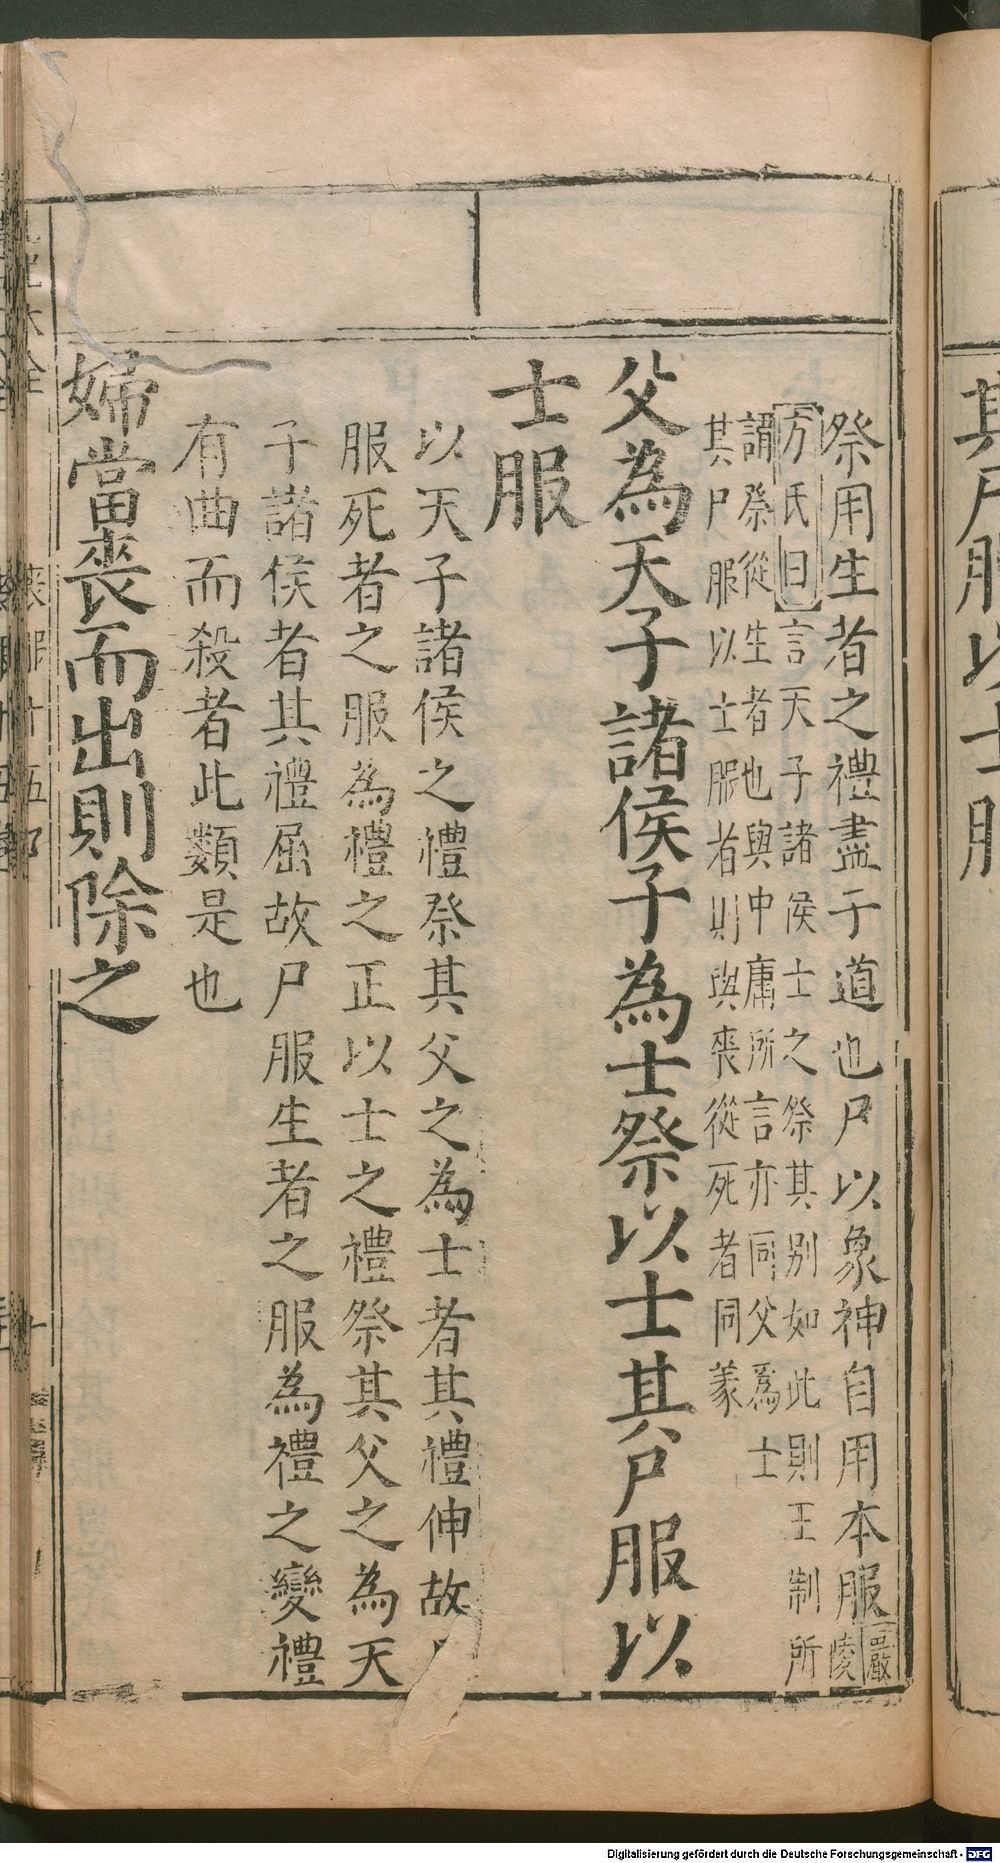 祭用生者之禮盡于道也尸以象神自用本服嚴陵
方氏曰言天子諸侯士之祭其別如此則王制所
謂祭從生者也與中庸所言亦同父爲士
其尸服以士服者則與喪從死者同義
父為天子諸侯子為士祭以士其尸服以
士服
以天子諸侯之禮祭其父之為士者其禮伸故尸
服死者之服為禮之正以士之禮祭其父之為天
子諸侯者其禮屈故尸服生者之服為禮之變禮
有曲而殺者此類是也
婦當喪而出則除之
其尸服以士服
Digitalisierung gefördert durch die Deutsche Forschungsgemeinschaft - DFG